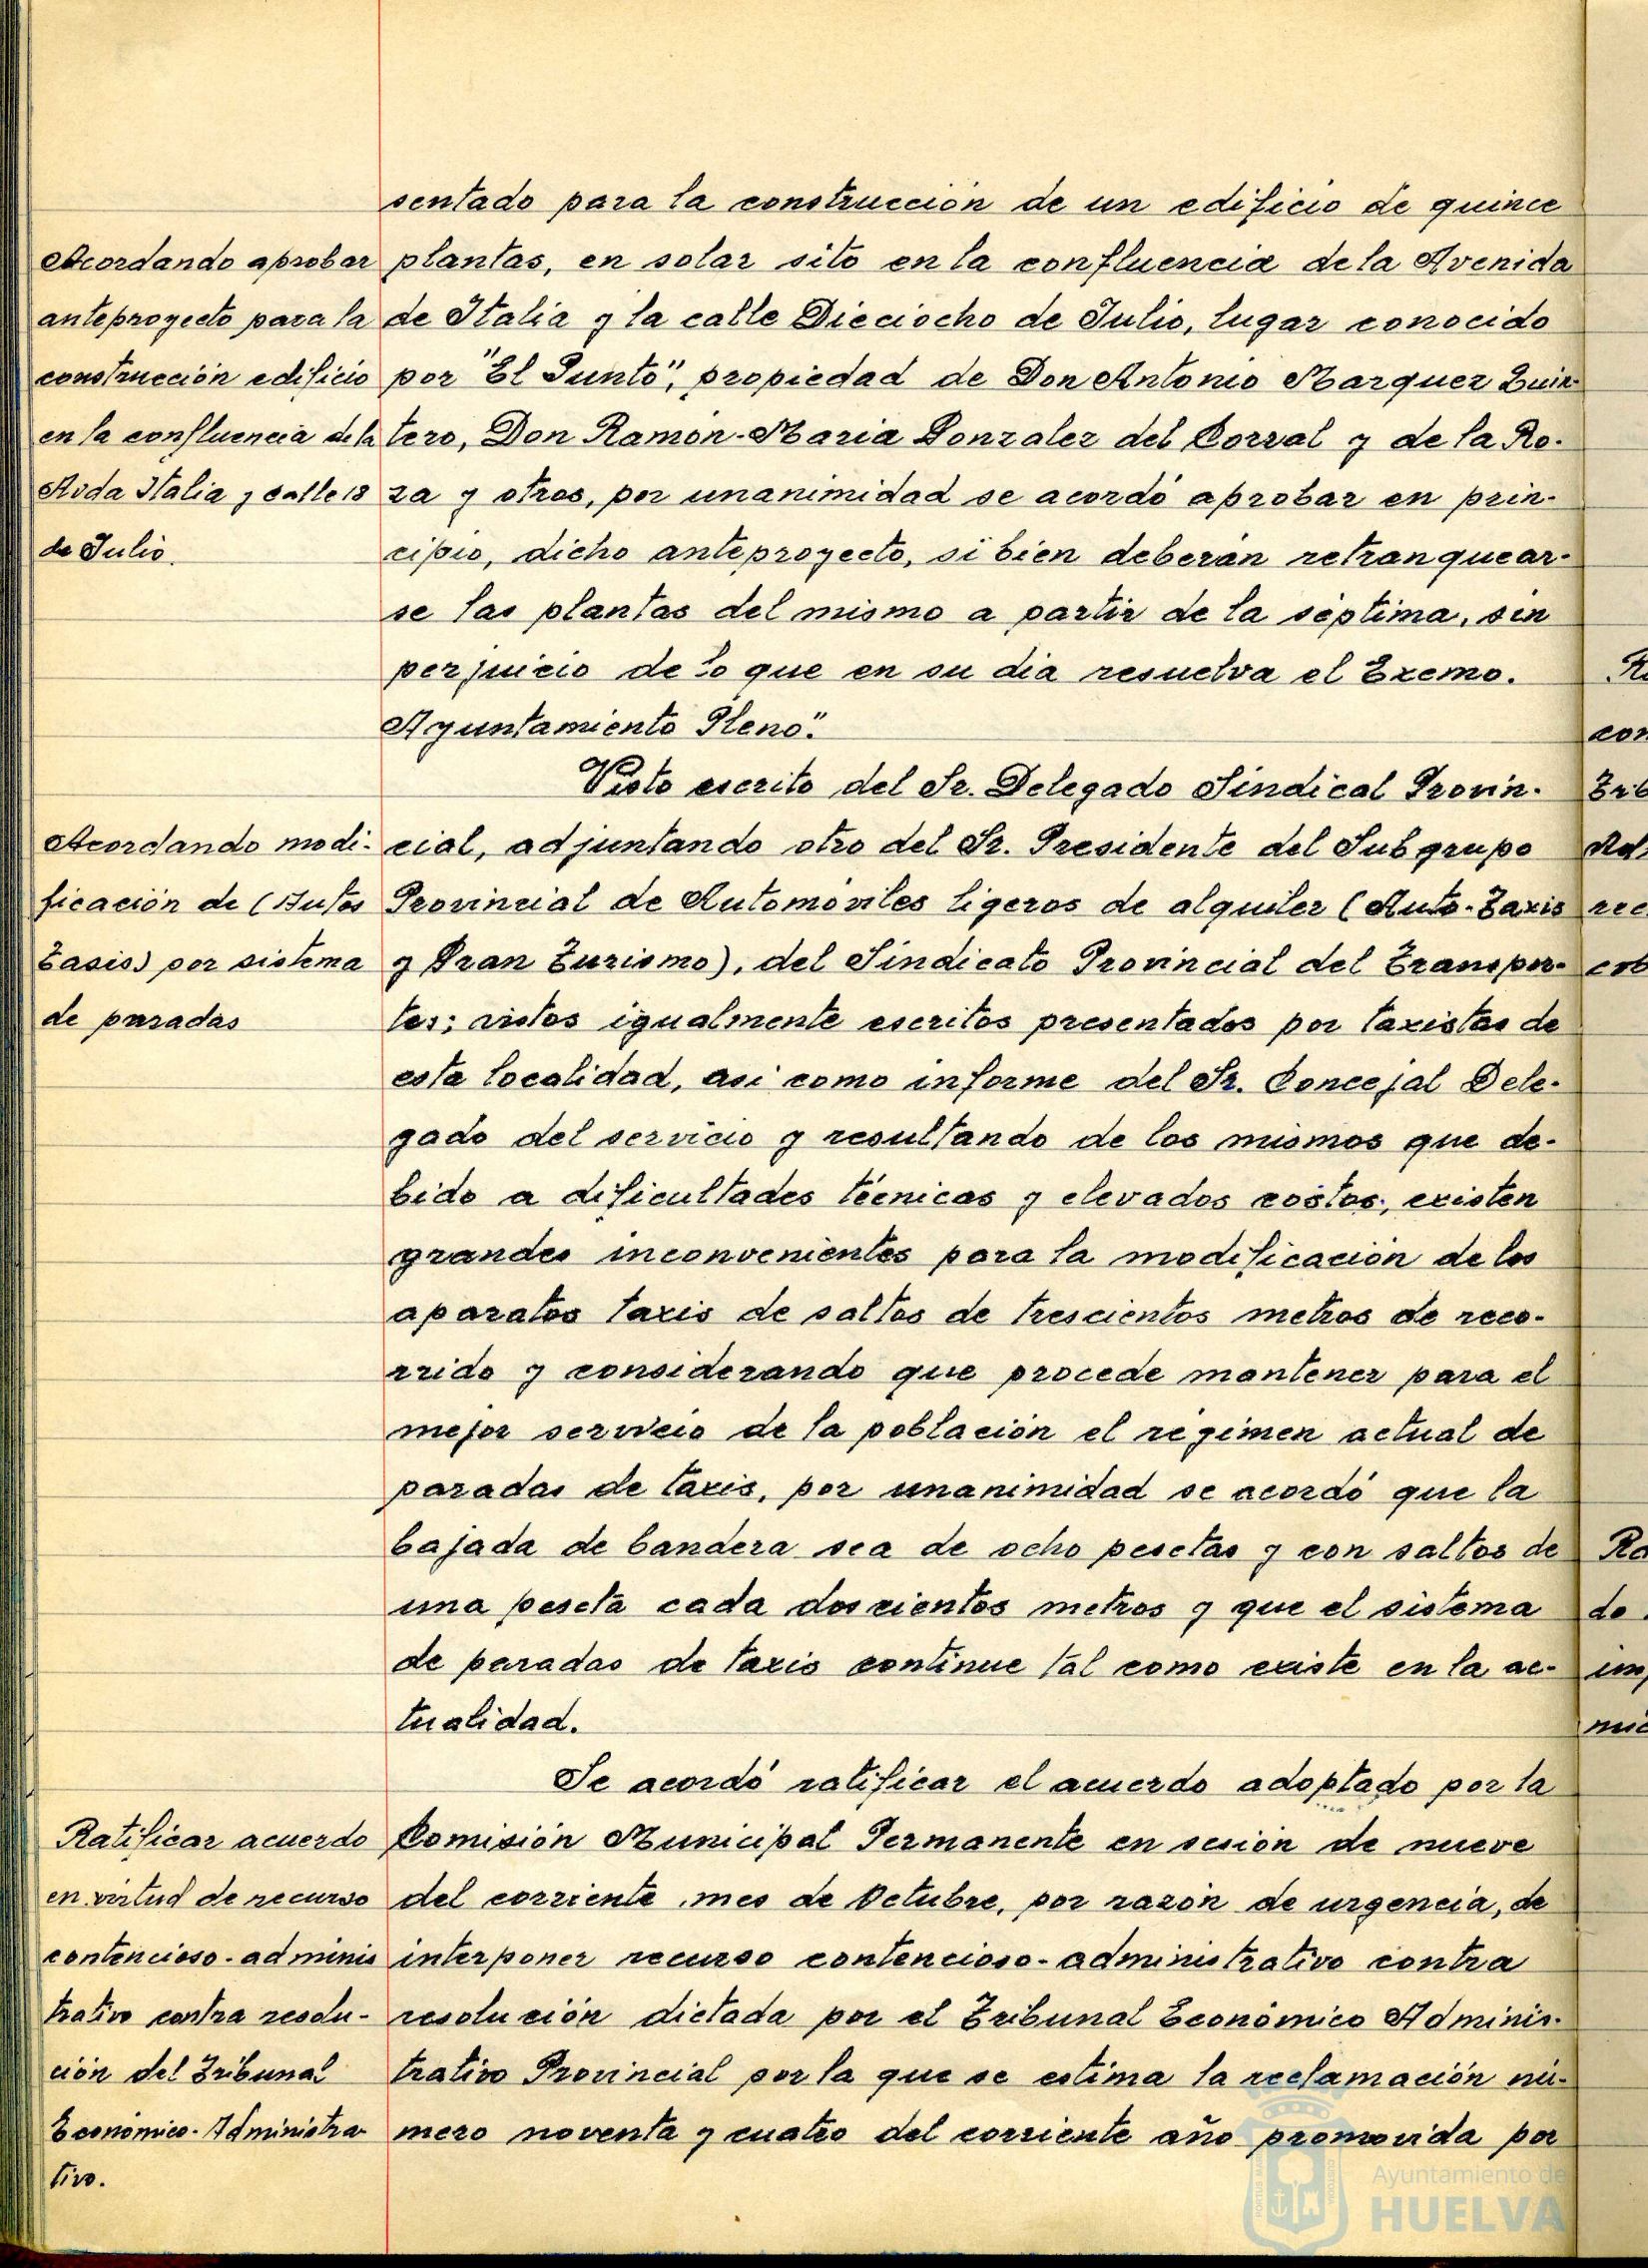 sentado para la construcción de un edificio de quince
Acordando aprobar
anteproyecto para la
construcción edificio
en la confluencia de la
Avda Italia y calle 18
de Julio.
plantas, en solar sito en la confluencia de la Avenida
de Italia y la calle Dieciocho de Julio, lugar conocido
por "El Punto", propiedad de Don Antonio Marquez Quin-
tero, Don Ramón-Maria Gonzalez del Corral y de la Ro-
za y otros, por unanimidad se acordó aprobar en prin-
cipio, dicho anteproyecto, si bien deberán retranquear-
se las plantas del mismo a partir de la séptima, sin
perjuicio de lo que en su dia resuelva el Excmo.
Ayuntamiento Pleno".
Visto escrito del Sr. Delegado Sindical Provin-
Acordando modi-
ficación de (Autos
Taxis) por sistema
de paradas
cial, adjuntando otro del Sr. Presidente del Subgrupo
Provincial de Automóviles ligeros de alquiler (Auto-Taxis
y Gran Turismo), del Sindicato Provincial del Transpor-
tes; vistos igualmente escritos presentados por taxistas de
esta localidad, asi como informe del Sr. Concejal Dele-
gado del servicio y resultando de los mismos que de-
bido a dificultades técnicas y elevados costos, existen
grandes inconvenientes para la modificación de los
aparatos taxis de saltos de trescientos metros de reco-
rrido y considerando que procede mantener para el
mejor servicio de la población el régimen actual de
paradas de taxis, por unanimidad se acordó que la
bajada de bandera sea de ocho pesetas y con saltos de
una peseta cada doscientos metros y que el sistema
de paradas de taxis continue tal como existe en la ac-
tualidad.
Se acordó ratificar el acuerdo adoptado por la
Ratificar acuerdo
en virtud de recurso
contencioso-adminis
trativo contra resolu-
ción del Tribunal
Económico-Administra
tivo.
Comisión Municipal Permanente en sesión de nueve
del corriente mes de Octubre, por razón de urgencia, de
interponer recurso contencioso-administrativo contra
resolución dictada por el Tribunal Económico Adminis-
trativo Provincial por la que se estima la reclamación nú-
mero noventa y cuatro del corriente año promovida por
Ayuntamiento de
HUELVA